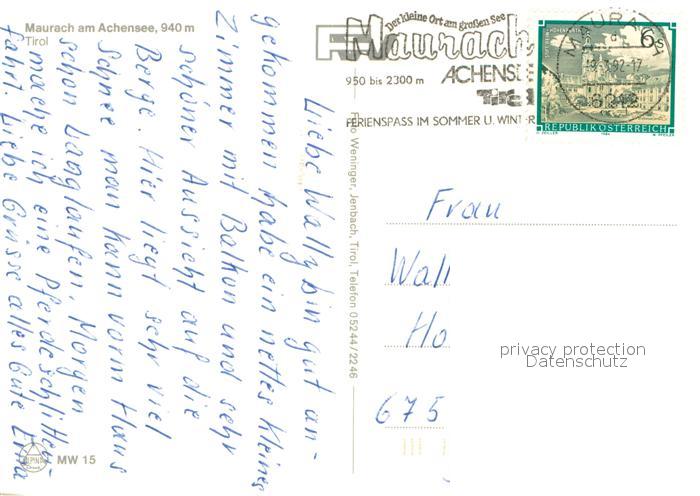 Maurach am Achensee, 940 m
Tirol
Liebe Wally bin gut an-
gekommen habe ein nettes kleines
Zimmer mit Balkon und sehr
schöner Aussicht auf die
Berge. Hier liegt sehr viel
Schnee man kann vorm Haus
schon Langlaufen, Morgen
mache ich eine Pferdeschlitten-
fahrt. Liebe Grüsse alles Gute Erna
MW 15
Foto Weninger, Jenbach, Tirol, Telefon 05244/2246
Der kleine Ort am großen See
Maurach
950 bis 2300 m
ACHENSEE
Tirol
FERIENSPASS IM SOMMER U. WINTER
MAURACH
6212
6 S
REPUBLIK ÖSTERREICH
Frau
Wall
Ho
675
privacy protection
Datenschutz